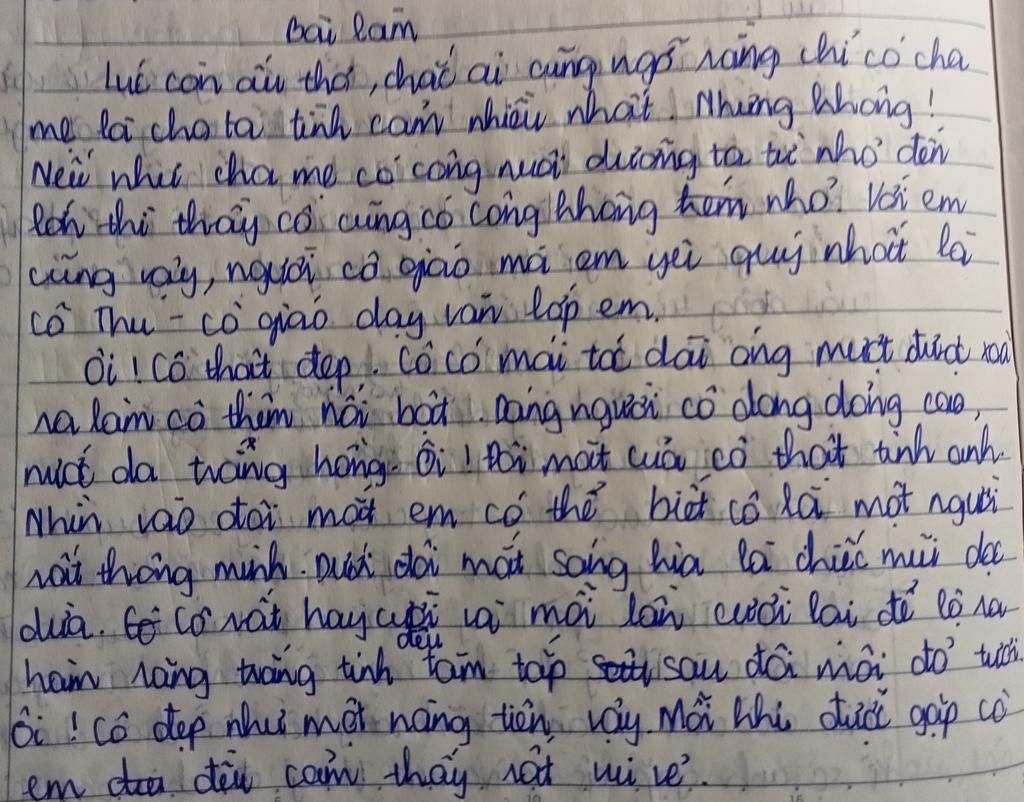 Bài làm
Lúc còn ấu thơ, chắc ai cũng ngỡ rằng chỉ có cha
mẹ là cho ta tình cảm nhiều nhất. Nhưng không!
Nếu như cha mẹ có công nuôi dưỡng ta từ nhỏ đến
lớn thì thầy cô cũng có công không kém nhỏ. Với em
cũng vậy, người cô giáo mà em yêu quý nhất là
cô Thu - cô giáo dạy văn lớp em.
Ôi! Cô thật đẹp. Cô có mái tóc dài óng mượt được xoã
ra làm cô thêm nổi bật. Dáng người cô dong dỏng cao,
nước da trắng hồng. Ôi! Đôi mắt của cô thật tinh anh.
Nhìn vào đôi mắt em có thể biết cô là một người
rất thông minh. Dưới đôi mắt sáng kia là chiếc mũi dọc
dừa. Cô rất hay cười và mỗi lần cười lại để lộ ra
hàm răng trắng tinh đều tăm tắp sau đôi môi đỏ tươi.
Ôi! Cô đẹp như một nàng tiên vậy. Mỗi khi được gặp cô
em đều cảm thấy rất vui vẻ.